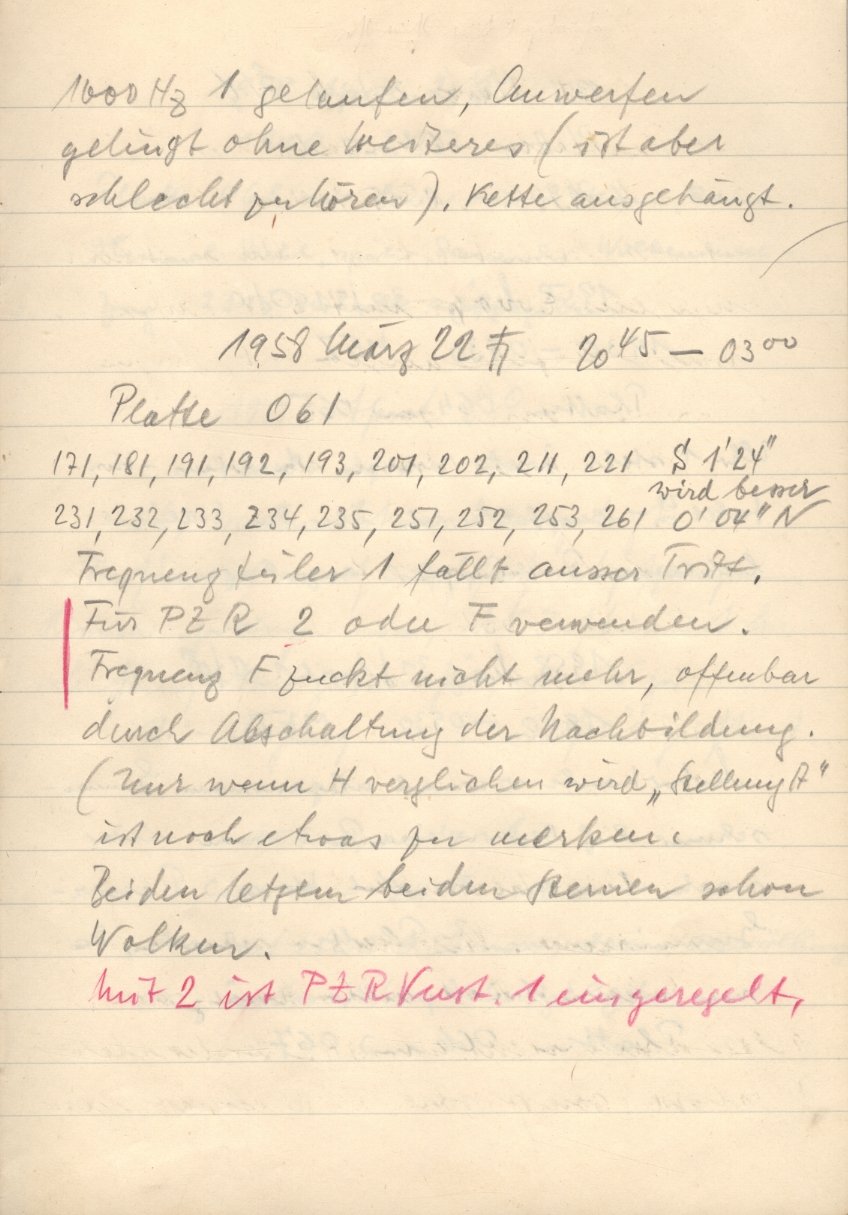 1000 Hz 1 gelaufen, Anwerfen
gelingt ohne Weiteres (ist aber
schlecht zu hören). Kette ausgehängt.
1958 März 22 ♄ 20⁴⁵ — 03⁰⁰
Platte 061
171, 181, 191, 192, 193, 201, 202, 211, 221 S 1'24"
wird besser
231, 232, 233, 234, 235, 251, 252, 253, 261 0'04" N
Frequenzteiler 1 fällt ausser Tritt.
Für PZR 2 oder F verwenden.
Frequenz F zuckt nicht mehr, offenbar
durch Abschaltung der Nachbildung.
(Nur wenn H verglichen wird „Stellung A"
ist noch etwas zu merken.
Bei den letzten beiden Sternen schon
Wolken.
Mit 2 ist PZR Verst. 1 eingeregelt,